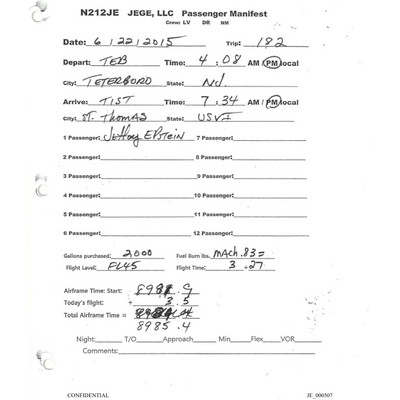 N212JE JEGE, LLC Passenger Manifest
Crew: LV DR NM
Date: 6 / 22 / 2015 Trip: 182
Depart: TEB Time: 4 : 08 AM / PM local
City: TETERBORO State: NJ.
Arrive: TIST Time: 7 : 34 AM / PM local
City: ST. THOMAS State: USVI
1 Passenger: Jeffrey EPSTEIN 7 Passenger:
2 Passenger: 8 Passenger:
3 Passenger: 9 Passenger:
4 Passenger: 10 Passenger:
5 Passenger: 11 Passenger:
6 Passenger: 12 Passenger:
Gallons purchased: 2000 Fuel Burn lbs. MACH .83=
Flight Level: FL45 Flight Time: 3 . 27
Airframe Time: Start: 8981 . 9
Today's flight: + 3 . 5
Total Airframe Time =
8985 .4
Night: T/O Approach Min Flex VOR
Comments:
CONFIDENTIAL JE_000507